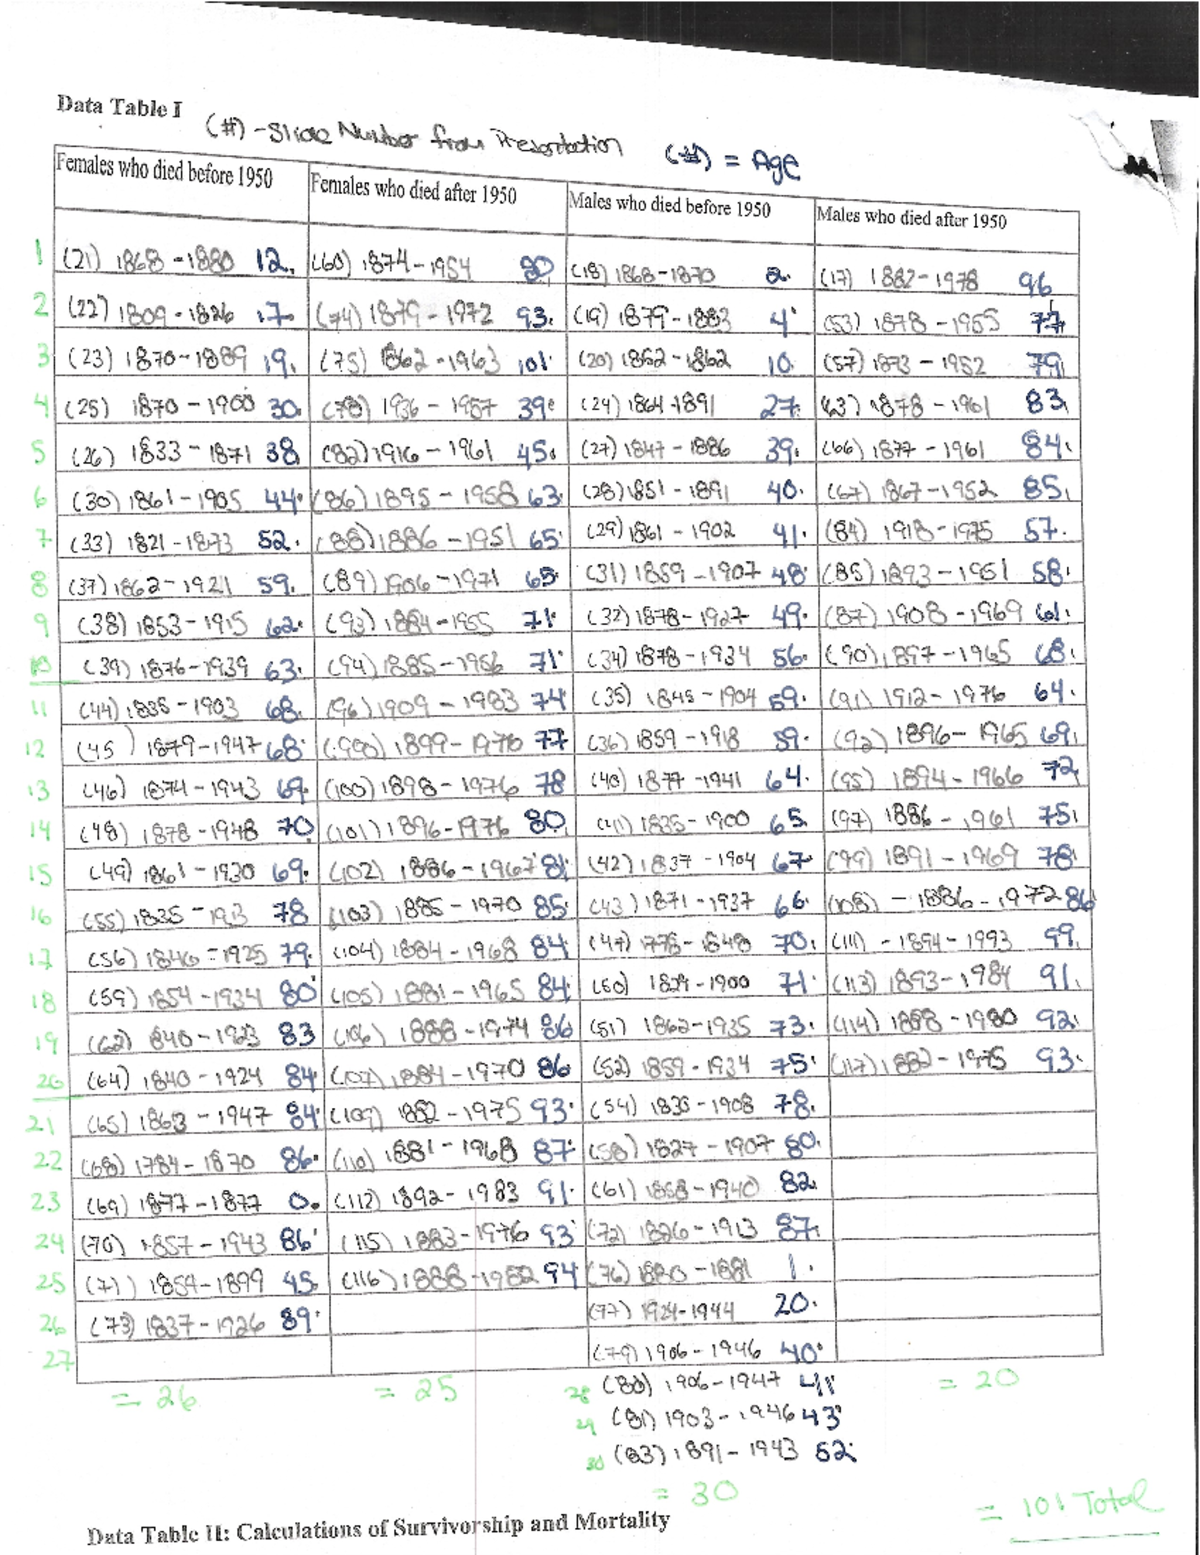 Data Table I
(#) - Slide Number from Presentation (#) = Age
Females who died before 1950 Females who died after 1950 Males who died before 1950 Males who died after 1950
1 (21) 1868 - 1880 12. (60) 1874 - 1954 80 (18) 1868 - 1870 2. (17) 1882 - 1978 96
2 (22) 1809 - 1826 17. (74) 1879 - 1972 93. (19) 1879 - 1883 4 (53) 1878 - 1955 77
3 (23) 1870 - 1889 19. (75) 1862 - 1963 101 (20) 1852 - 1862 10. (57) 1873 - 1952 79
4 (25) 1870 - 1900 30. (78) 1936 - 1957 39 (24) 1864 - 1891 27. (63) 1878 - 1961 83
5 (26) 1833 - 1871 38 (82) 1916 - 1961 45. (27) 1847 - 1886 39. (66) 1877 - 1961 84.
6 (30) 1861 - 1905 44 (86) 1895 - 1958 63 (28) 1851 - 1891 40. (67) 1867 - 1952 85.
7 (33) 1821 - 1873 52. (88) 1886 - 1951 65 (29) 1861 - 1902 41. (84) 1918 - 1975 57.
8 (37) 1862 - 1921 59. (89) 1906 - 1971 65 (31) 1859 - 1907 48 (85) 1893 - 1951 58.
9 (38) 1853 - 1915 62. (93) 1884 - 1955 71 (32) 1878 - 1927 49. (87) 1908 - 1969 61.
10 (39) 1876 - 1939 63. (94) 1885 - 1956 71 (34) 1878 - 1934 56. (90) 1897 - 1965 68.
11 (44) 1835 - 1903 68. (96) 1909 - 1983 74 (35) 1845 - 1904 59. (91) 1912 - 1976 64.
12 (45) 1879 - 1947 68 1899 - 1976 77 (36) 1859 - 1918 59. (92) 1896 - 1965 69
13 (46) 1874 - 1943 69. (100) 1898 - 1976 78 (40) 1877 - 1941 64. (95) 1894 - 1966 72
14 (48) 1878 - 1948 70 (101) 1896 - 1976 80 (41) 1835 - 1900 65. (97) 1886 - 1961 75
15 (49) 1861 - 1930 69. (102) 1886 - 1967 81 (42) 1837 - 1904 67 (99) 1891 - 1969 78
16 (55) 1835 - 1913 78 (103) 1885 - 1970 85 (43) 1871 - 1937 66. (108) - 1886 - 1972 86
17 (56) 1846 - 1925 79. (104) 1884 - 1968 84 (47) 1778 - 1848 70. (111) - 1894 - 1993 99.
18 (59) 1854 - 1934 80 (105) 1881 - 1965 84 (50) 1829 - 1900 71 (113) 1893 - 1984 91.
19 (62) 1840 - 1923 83 (106) 1888 - 1974 86 (51) 1862 - 1935 73. (114) 1888 - 1980 92.
20 (64) 1840 - 1924 84 (107) 1884 - 1970 86 (52) 1859 - 1934 75 (117) 1882 - 1975 93.
21 (65) 1863 - 1947 84 (109) 1882 - 1975 93 (54) 1835 - 1908 78.
22 (68) 1784 - 1870 86. (110) 1881 - 1968 87 (58) 1827 - 1907 80.
23 (69) 1877 - 1877 0. (112) 1892 - 1983 91 (61) 1858 - 1940 82
24 (70) 1857 - 1943 86 (115) 1883 - 1976 93 (72) 1826 - 1913 87
25 (71) 1854 - 1899 45 (116) 1888 - 1982 94 (76) 1880 - 1881 1.
26 (73) 1837 - 1926 89 (77) 1924 - 1944 20.
27 (79) 1906 - 1946 40
= 26 = 25 28 (80) 1906 - 1947 41 = 20
29 (81) 1903 - 1946 43
30 (83) 1891 - 1943 52
= 30 = 101 Total
Data Table II: Calculations of Survivorship and Mortality